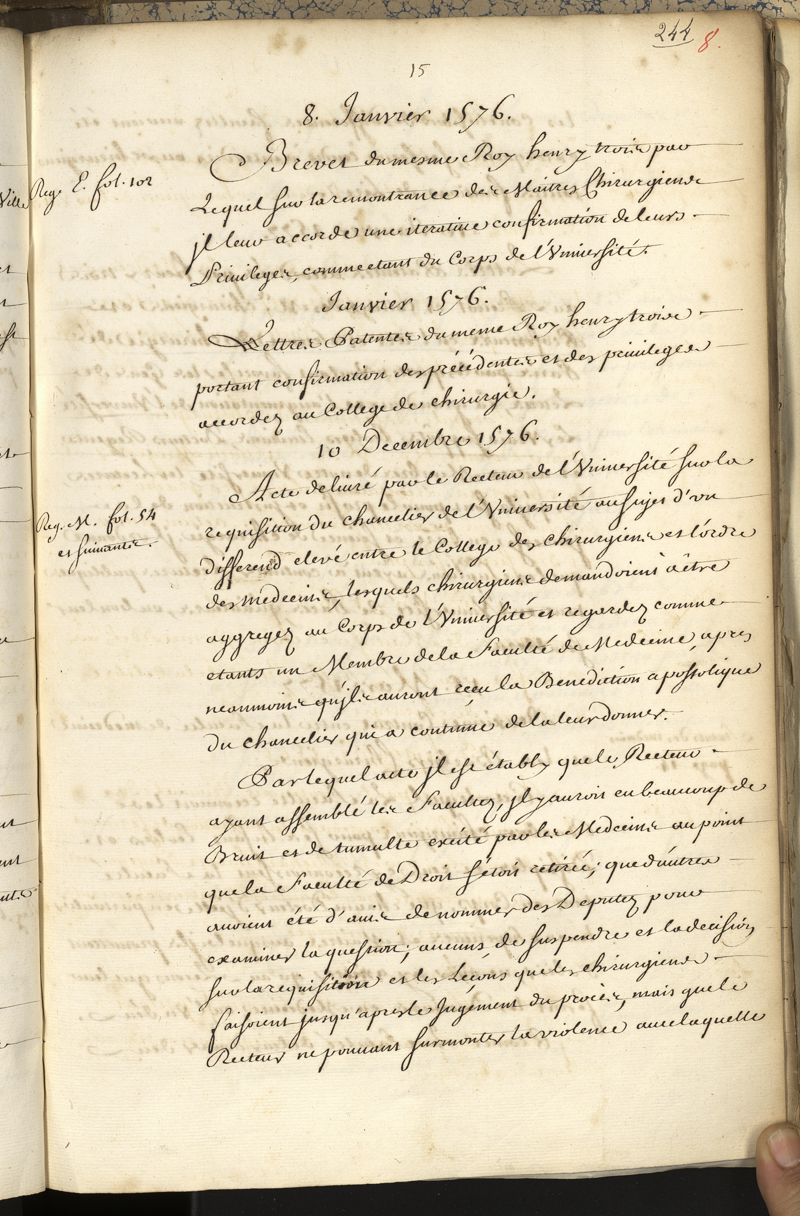 244 8.
15
8. Janvier 1576.
Reg. E. fol. 102
Brevet du mesme Roy henry trois par
Lequel sur la remontrance des Maîtres Chirurgiens
jl leur accorde une iterative confirmation de leurs
Privileges, comme etant du Corps de l'Université.
Janvier 1576.
Lettres Patentes du meme Roy henry trois
portant confirmation des précédentes et des privileges
accordez au College de chirurgie.
10 Decembre 1576.
Reg. M. fol. 54
et suivants.
Acte delivré par le Recteur de l'Université sur la
requisition du chancelier de l'Université au sujet d'un
differend elevé entre le College des chirurgiens et l'ordre
des medecins, lesquels chirurgiens demandoient à être
aggregez au Corps de l'Université et regardez comme
etants un Membre de la Faculté de Medecine, apres
neanmoins qu'jls auront reçu la Benediction apostolique
du chancelier qui a continué de la leur donner.
Par lequel acte jl est établÿ que le Recteur
ayant assemblé les Facultez, jl y auroit eu beaucoup de
Bruit et de tumulte excité par les Medecins au point
que la Faculté de Droit s'étoit retirée; que d'autres
avoient été d'avis de nommer des Deputez pour
examiner la question; aucuns de suspendre et la decision
sur la requisition et les Leçons que les chirurgiens
faisoient jusqu'apres le Jugement du procès, mais que le
Recteur ne pouvant surmonter la violence avec laquelle
Ville